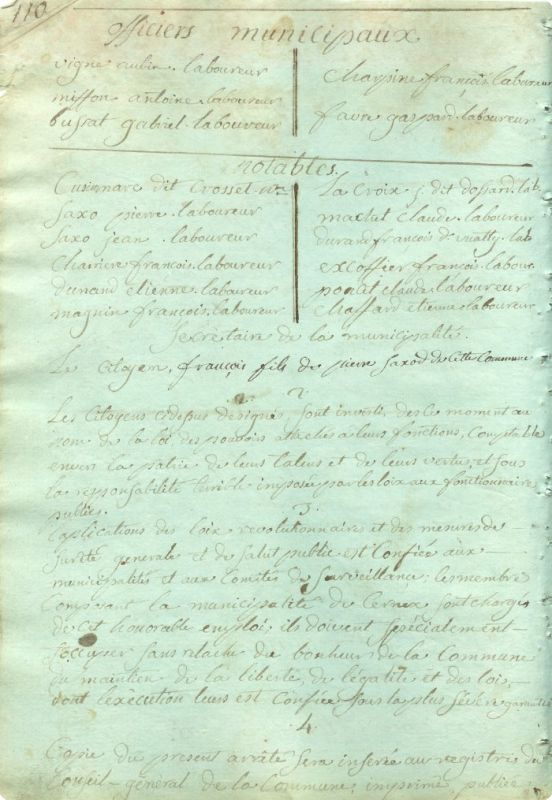 110
officiers municipaux
vigne aubin. laboureur
misson antoine. laboureur
bussat gabriel. laboureur
Charrine françois. laboureur
favre gaspard. laboureur
notables.
Cusinnare dit Crosset
Saxo pierre. laboureur
Saxo jean. laboureur
Charriere françois. laboureur
dunand etienne. laboureur
magnin françois. laboureur
La Croix j. dit dossard. lab
machet Claude. laboureur
durand françois d. lab
excoffier françois. labour
poncet Claude. laboureur
Chaffard etienne. laboureur
Secretaire de la municipalité.
Le Citoyen, françois fils de pierre Saxod de Cette Commune
2
Les Citoyens cydepus designés, sont investi, des ce moment au
nom de la loi des pouvoirs attachés a leurs fonctions, Comptable
envers la patrie de leurs talens et de leurs vertus, et sous
la responsabilité terible imposée par les loix aux fonctionnaires
publics.
3.
L'aplications des loix revolutionnaires et des mesures de -
Sureté generale et de Salut public est Confiée aux -
municipalités et aux Comités de Surveillance; les membres
Composant la municipalité de Cernex sont chargés
de Cet honorable employ, ils doivent specialement
s'occuper sans relache du bonheur de la Commune
du maintien de la liberte, de l'egalité et des lois, -
dont l'execution leurs est Confiée sous la plus sévère garantie
4
Copie du present arrêté sera inserée au registres du
Conseil - general de la Commune, imprimé publiée